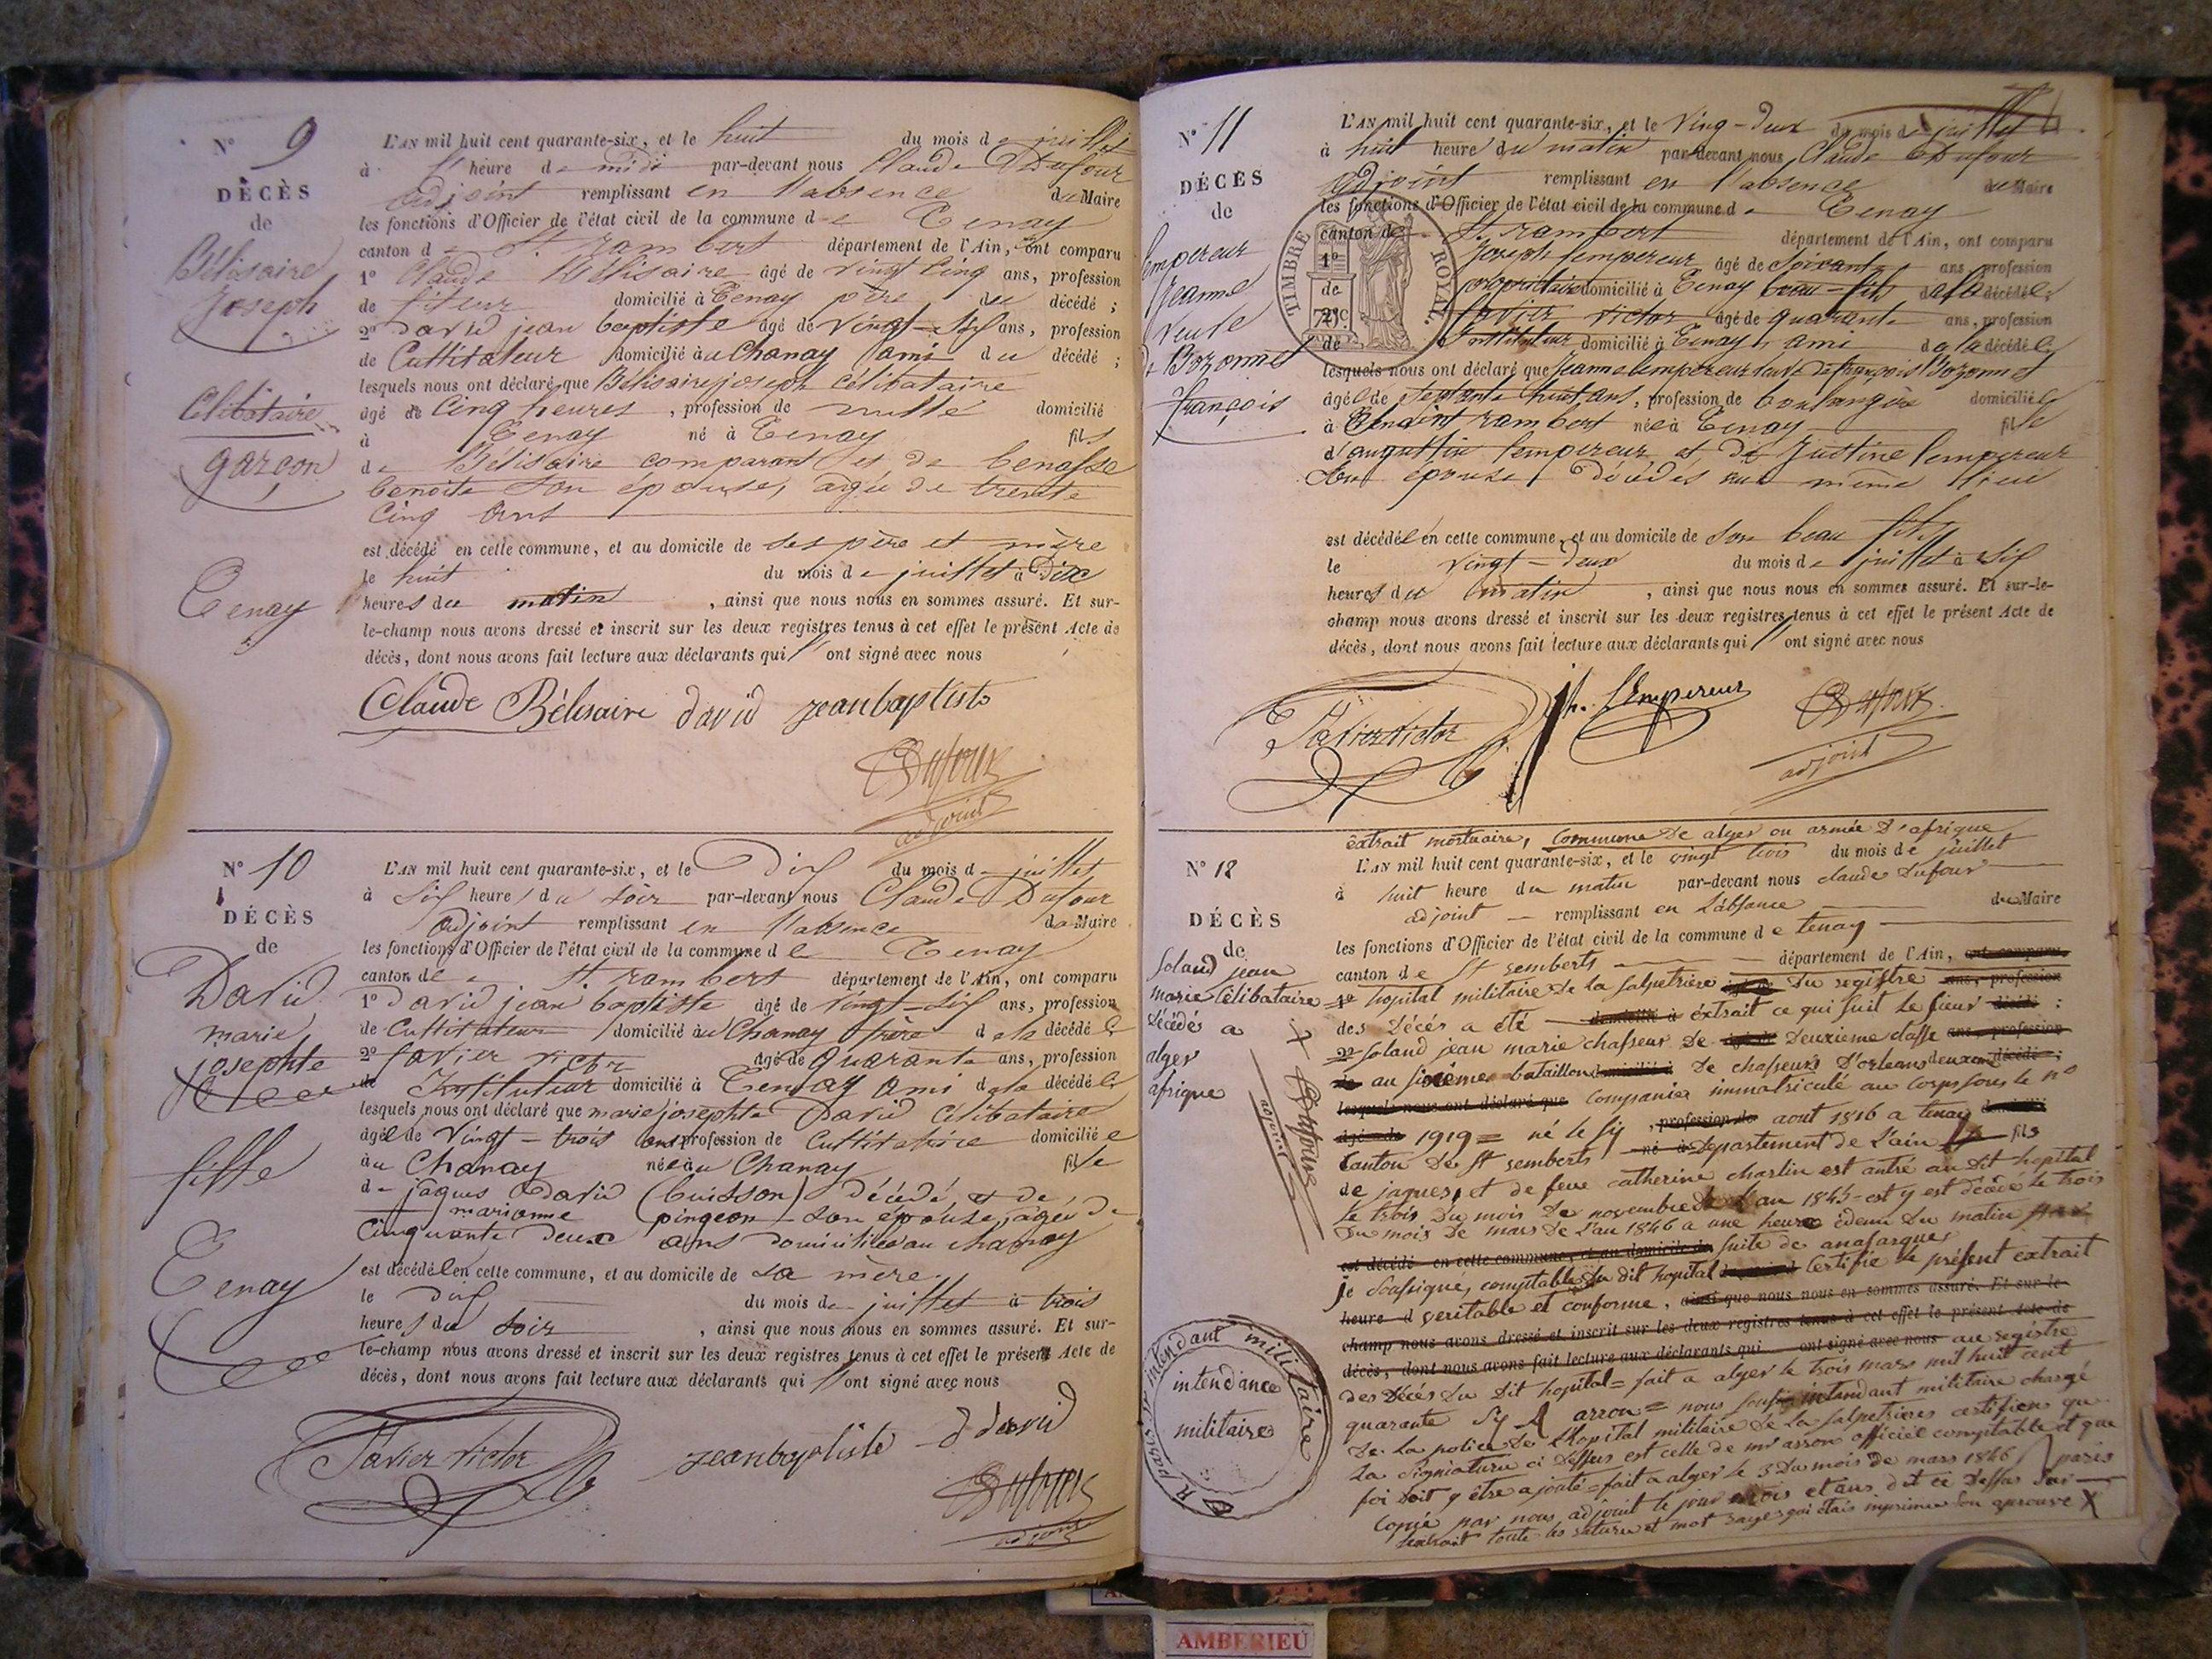 N° 9
DÉCÈS
de
Bélisaire
Joseph
Célibataire
garçon
Tenay
L'AN mil huit cent quarante-six, et le huit du mois de juillet
à heure de midi par-devant nous Claude Dufour
adjoint remplissant en l'absence du Maire
les fonctions d'Officier de l'état civil de la commune de Tenay
canton de St. rambert département de l'Ain, ont comparu
1° Claude Bélisaire âgé de vingt cinq ans, profession
de fileur domicilié à Tenay père du décédé ;
2° David jean baptiste âgé de vingt-six ans, profession
de Cultivateur domicilié au Chanay ami du décédé ;
lesquels nous ont déclaré que Bélisaire joseph célibataire
âgé de Cinq heures, profession de nulle domicilié
à Tenay né à Tenay fils
de Bélisaire comparant et de benasse
benoite son épouse, agée de trente
cinq ans
est décédé en cette commune, et au domicile de ses père et mère
le huit du mois de juillet à dix
heures du matin, ainsi que nous nous en sommes assuré. Et sur-
le-champ nous avons dressé et inscrit sur les deux registres tenus à cet effet le présent Acte de
décès, dont nous avons fait lecture aux déclarants qui ont signé avec nous
Claude Bélisaire david jeanbaptiste
Dufour
adjoint
N° 10
DÉCÈS
de
David
marie
josephte
fille
Tenay
L'AN mil huit cent quarante-six, et le Dix du mois de juillet
à six heures du soir par-devant nous Claude Dufour
adjoint remplissant en l'absence du Maire
les fonctions d'Officier de l'état civil de la commune de Tenay
canton de St. rambert département de l'Ain, ont comparu
1° David jean baptiste âgé de vingt-six ans, profession
de Cultivateur domicilié au Chanay frère de la décédée
2° favier victor âgé de quarante ans, profession
de Instituteur domicilié à Tenay ami de la décédée
lesquels nous ont déclaré que marie josephte David célibataire
âgée de vingt-trois ans profession de Cultivatrice domiciliée
au Chanay née au Chanay fille
de jaques David (buisson) décédé, et de
marianne pingeon son épouse, agée de
Cinquante deux ans domiciliée au chanay
est décédée en cette commune, et au domicile de sa mère
le dix du mois de juillet à trois
heures du soir, ainsi que nous nous en sommes assuré. Et sur-
le-champ nous avons dressé et inscrit sur les deux registres tenus à cet effet le présent Acte de
décès, dont nous avons fait lecture aux déclarants qui ont signé avec nous
Favier victor jeanbaptiste david
Dufour
adjoint
N° 11
DÉCÈS
de
lempereur
Jeanne
veuve
de Bozonnet
françois
L'AN mil huit cent quarante-six, et le Ving-deux du mois de juillet
à huit heure du matin par-devant nous Claude Dufour
adjoint remplissant en l'absence du Maire
les fonctions d'Officier de l'état civil de la commune de Tenay
canton de St. rambert département de l'Ain, ont comparu
1° Joseph lempereur âgé de soixante ans, profession
de propriétaire domicilié à Tenay beau-fils de la décédée
2° favier victor âgé de quarante ans, profession
de Instituteur domicilié à Tenay, ami de la décédée
TIMBRE ROYAL.
lesquels nous ont déclaré que Jeanne lempereur veuve de françois Bozonnet
âgée de septante huit ans, profession de boulangère domiciliée
à saint rambert née à Tenay fille
d'augustin lempereur et de Justine lempereur
son épouse, décédés au même lieu
est décédée en cette commune, et au domicile de son beau fils
le vingt-deux du mois de juillet à six
heures du matin, ainsi que nous nous en sommes assuré. Et sur-le-
champ nous avons dressé et inscrit sur les deux registres tenus à cet effet le présent Acte de
décès, dont nous avons fait lecture aux déclarants qui ont signé avec nous
Favier victor Jh. lEmpereur Dufour
adjoint
extrait mortuaire, Commune de alger ou armée d'afrique
N° 12
DÉCÈS
de
Soland jean
marie Célibataire
décédés a
alger
afrique
X Dufour
adjoint
L'AN mil huit cent quarante-six, et le vingt trois du mois de juillet
à huit heure du matin par-devant nous claude Dufour
adjoint remplissant en l'absance du Maire
les fonctions d'Officier de l'état civil de la commune de tenay
canton de St remberts département de l'Ain, ont comparu
1° hopital militaire de la salpetriere du registre ans, profession
des décés a été domicilié à éxtrait ce qui suit le sieur décédé ;
2° soland jean marie chasseur de deuxieme classe ans, profession
de au sixième bataillon domicilié à de chasseurs d'orleans deuxieme décédé ;
lesquels nous ont déclaré que Companie immatriculé au corps sous le n°
âgé de 1919 = né le six, profession de aout 1816 a tenay domicilié
Canton de St remberts né à département de l'ain fils
de jaques, et de feue catherine charlin est antré au dit hopital
le trois du mois de novembre de l'an 1845 = est y est décédé le trois
du mois de mars de l'an 1846 a une heure é demi du matin par
est décédé en cette commune, et au domicile de suite de anasarque
je soussigne, comptable du dit hopital Certifie le présent extrait
heure d veritable et conforme, ainsi que nous nous en sommes assuré. Et sur-le-
champ nous avons dressé et inscrit sur les deux registres tenus à cet effet le présent Acte de
décès, dont nous avons fait lecture aux déclarants qui ont signé avec nous au registre
des décés du dit hopital = fait a alger le trois mars mil huit cent
quarante six arron = nous sousig intendant militaire chargé
de la police de l'hopital militaire de la salpetrieres certifions que
la signiature ci dessus est celle de mr arron officiel comptable et que
foi doit y être ajouté = fait a alger le 3 du mois de mars 1846 paris
Copié par nous adjoint le jour mois et ans dit ci dessus sur
l'extrait toute les rature et mot rayes qui étais imprimer son aprouvé X
intendant militaire
intendance
militaire
AMBERIEU